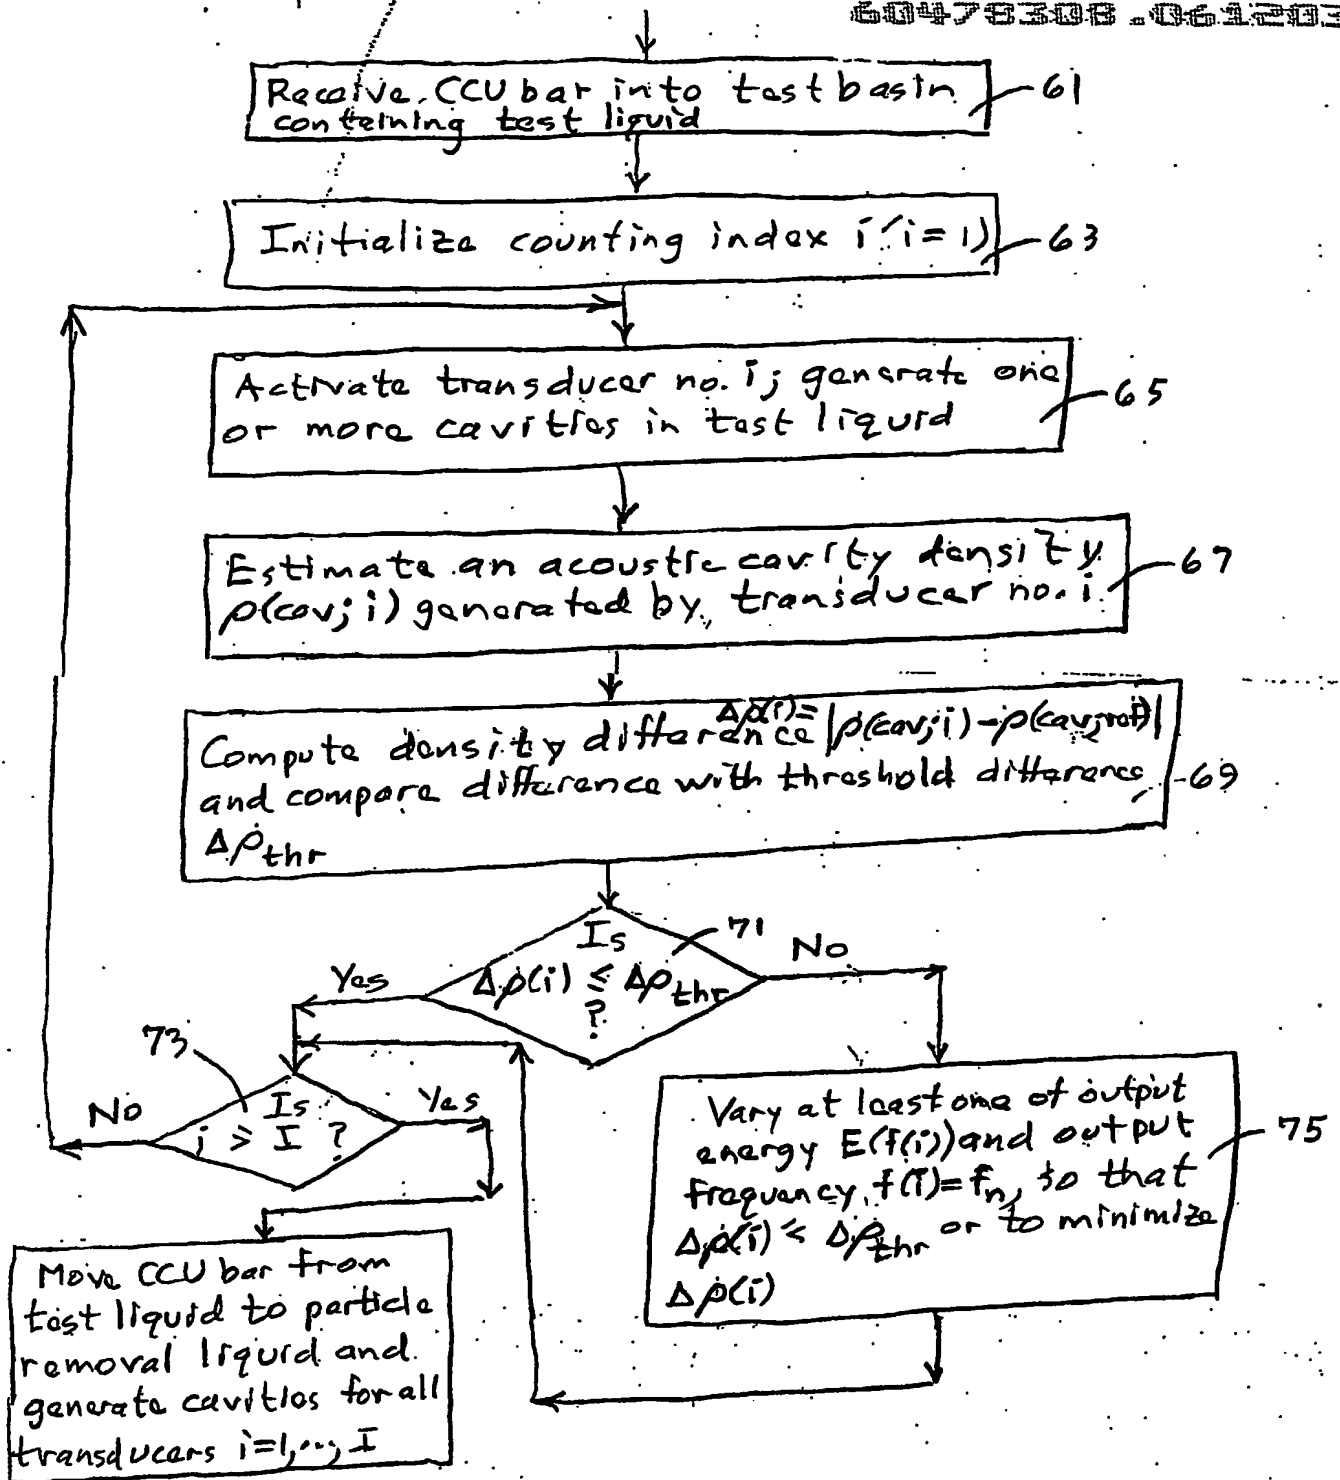 60478308.061203
Receive CCU bar into test basin
containing test liquid
61
Initialize counting index i (i=1)
63
Activate transducer no. i; generate one
or more cavities in test liquid
65
Estimate an acoustic cavity density
ρ(cav; i) generated by transducer no. i.
67
Δρ(i)=
Compute density difference |ρ(cav;i)-ρ(cav;ref)|
and compare difference with threshold difference
Δρthr
69
Is
Δρ(i) ≤ Δρthr
?
71
Yes
No
73
Is
i ≥ I ?
No
Yes
Vary at least one of output
energy E(f(i)) and output
frequency, f(i)=fn, so that
Δρ(i) ≤ Δρthr or to minimize
Δρ(i)
75
Move CCU bar from
test liquid to particle
removal liquid and
generate cavities for all
transducers i=1,..., I